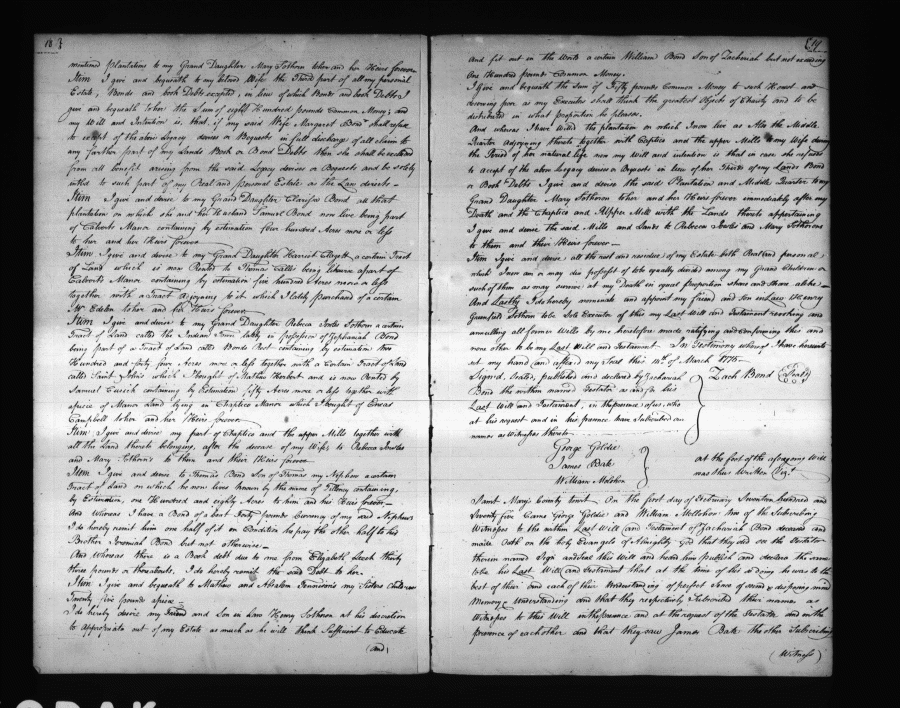 183
mentioned plantations to my Grand Daughter Mary Sothoron to her and her Heirs forever
Item I give and bequeath to my beloved Wife the Third part of all my personal
Estate, Bonds and book Debts excepted, in lieu of which Bonds and book Debts I
give and bequeath to her the Sum of eight Hundred pounds Common Money; and
my Will and Intention is, that if my said Wife Margaret Bond shall refuse
to accept of the above Legacy devises or Bequests in full discharge of all claim to
any farther part of my Lands Book or Bond Debts then she shall be excluded
from all benefit arising from the said Legacy devises or Bequests and be solely
intitled to such part of my Real and personal Estate as the Law directs
Item I give and devise to my Grand Daughter Clarissa Bond all that
plantation on which she and her Husband Samuel Bond now live being part
of Calverts Manor containing by estimation four hundred Acres more or less
to her and her Heirs forever
Item I give and devise to my Grand Daughter Harriott Clagett a certain Tract
of Land which is now Rented to Thomas being likewise apart of
Calverts Manor containing by estimation five hundred Acres more or less
together with a Tract adjoining to it which I lately purchased of a certain
Edelen to her and her Heirs forever
Item I give and devise to my Grand Daughter Rebecca Sothoron a certain
Tract of Land called the Indian Town lately in possession of Zephaniah Bond
being part of a Tract of Land called Bonds Rest containing by estimation two
Hundred and forty four Acres more or less together with a Certain Tract of Land
called Saint John's which I bought of Mathew Herbert and is now Rented by
Samuel containing by Estimation fifty Acres more or less together with
apiece of Manor Land lying in Chaptico Manor which I bought of Eneas
Campbell to her and her Heirs forever
Item I give and devise my part of Chaptico and the upper Mills together with
all the Land thereto belonging, after the decease of my Wife to Rebecca
and Mary Sothoron's to them and their Heirs forever
Item I give and devise to Thomas Bond Son of Thomas my Nephew a certain
Tract of Land on which he now lives known by the name of containing,
by Estimation, one Hundred and eighty Acres to him and his Heirs forever
And Whereas I have a Bond of a bout Sixty pounds Currency of my said Nephew
I do hereby remit him one half of it on Condition he pay the other half to his
Brother Jeremiah Bond but not otherwise
And Whereas there is a Book debt due to me from Elizabeth Leech thirty
three pounds or thereabouts. I do hereby remit the said Debt to her.
Item I give and bequeath to Mathew and Absalom my Sisters Children
Seventy five pounds apiece
I do hereby desire my Friend and Son in Law Henry Sothoron at his discretion
to appropriate out of my Estate as much as he will think Sufficient to Educate
(and)
and fit out in the World a certain William Bond Son of Zachariah but not exceeding
One Hundred pounds Common Money.
I Give and bequeath the Sum of Fifty pounds Common Money to such Honest and
deserving poor as my Executor shall think the greatest Objects of Charity and to be
distributed in what proportion he pleases.
And whereas I have Willed the plantation on which I now live as Also the Middle
Quarter adjoyning thereto together with Chaptico and the upper Mills to my Wife during
the Period of her natural life now my will and intention is that in case she refuses
to accept of the above Legacy devises or Bequests in lieu of her Thirds of my Lands Bond
or Book Debts I give and devise the said Plantation and Middle Quarter to my
Grand Daughter Mary Sothoron to her and her Heirs forever immediately after my
Death and the Chaptico and Upper Mill with the Lands thereto appertaining
I give and devise the said Mills and Lands to Rebecca and Mary Sothorons
to them and their Heirs forever
Item I give and devise all the rest and residue of my Estate both Real and personal
which I now am or may die possessed of to be equally divided among my Grand Children or
such of them as may survive at my Death in equal proportion share and share alike
And Lastly I do hereby nominate and appoint my friend and Son in Law Henry
Greenfield Sothoron to be Sole Executor of this my Last Will and Testament revoking and
annulling all former Wills by me heretofore made ratifying and confirming this and
none other to be my Last Will and Testament. In Testimony whereof I have hereunto
set my hand and affixed my Seal this 10th of March 1775
Signed, Sealed, published and declared by Zachariah
Bond the within named Testator as and for his
Last Will and Testament, in the presence of us, who
at his request and in his presence have Subscribed our
names as Witnesses thereto
Zach Bond (Seal)
George Goldie
James Bate
William Melohon
at the foot of the aforegoing Will
was thus Written Viz.
Saint Mary's County Court. On the first day of February Seventeen hundred and
Seventy five Came George Goldie and William Mellohon two of the Subscribing
Witnesses to the within Last Will and Testament of Zachariah Bond deceased and
made Oath on the Holy Evangels of Almighty God that they did see the Testator
therein named Sign and Seal this Will and heard him Publish and declare the same
to be his Last Will and Testament that at the time of his so doing he was to the
best of their and each of their Understanding of perfect Sense of sound & disposing mind
Memory & Understanding and that they respectively Subscribed their names as
Witnesses to this Will in the presence and at the request of the Testator and in the
presence of each other and that they saw James Bate the other Subscribing
(Witness)